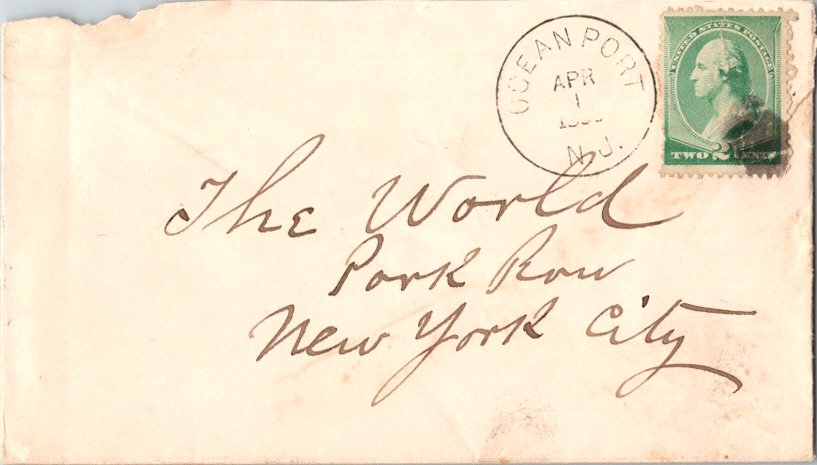 OCEAN PORT
APR
1
N.J.
UNITED STATES POSTAGE
TWO 2 CENTS
The World
Park Row
New York City